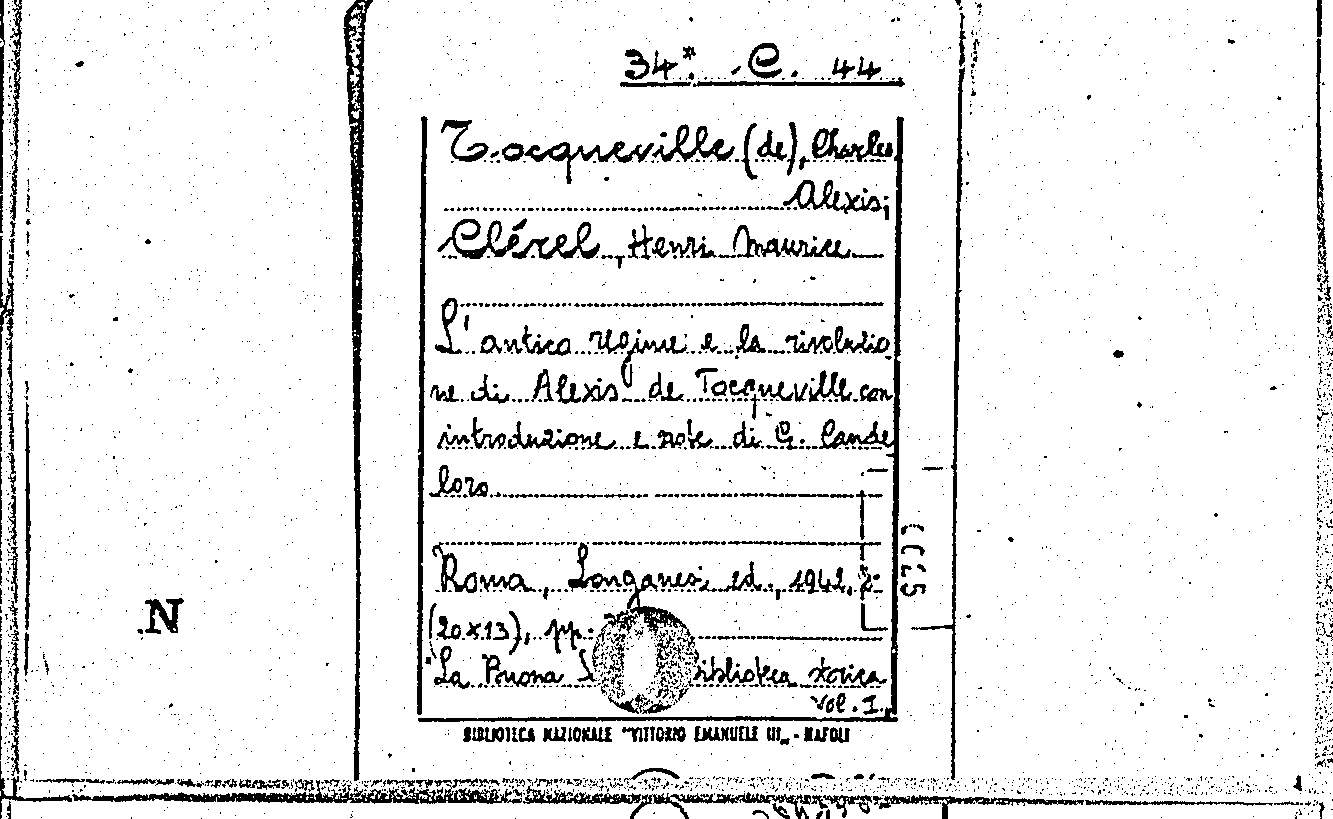 34*. C. 44
Tocqueville (de), Charles
Alexis;
Clérel, Henri Maurice
L'antico regime e la rivoluzio
ne di Alexis de Tocqueville con
introduzione e note di G. Cande
loro.
Roma, Longanesi ed., 1942,
(20x13), pp.
"La Buona Biblioteca storica
Vol. I„
BIBLIOTECA NAZIONALE "VITTORIO EMANUELE III„ - NAPOLI
N